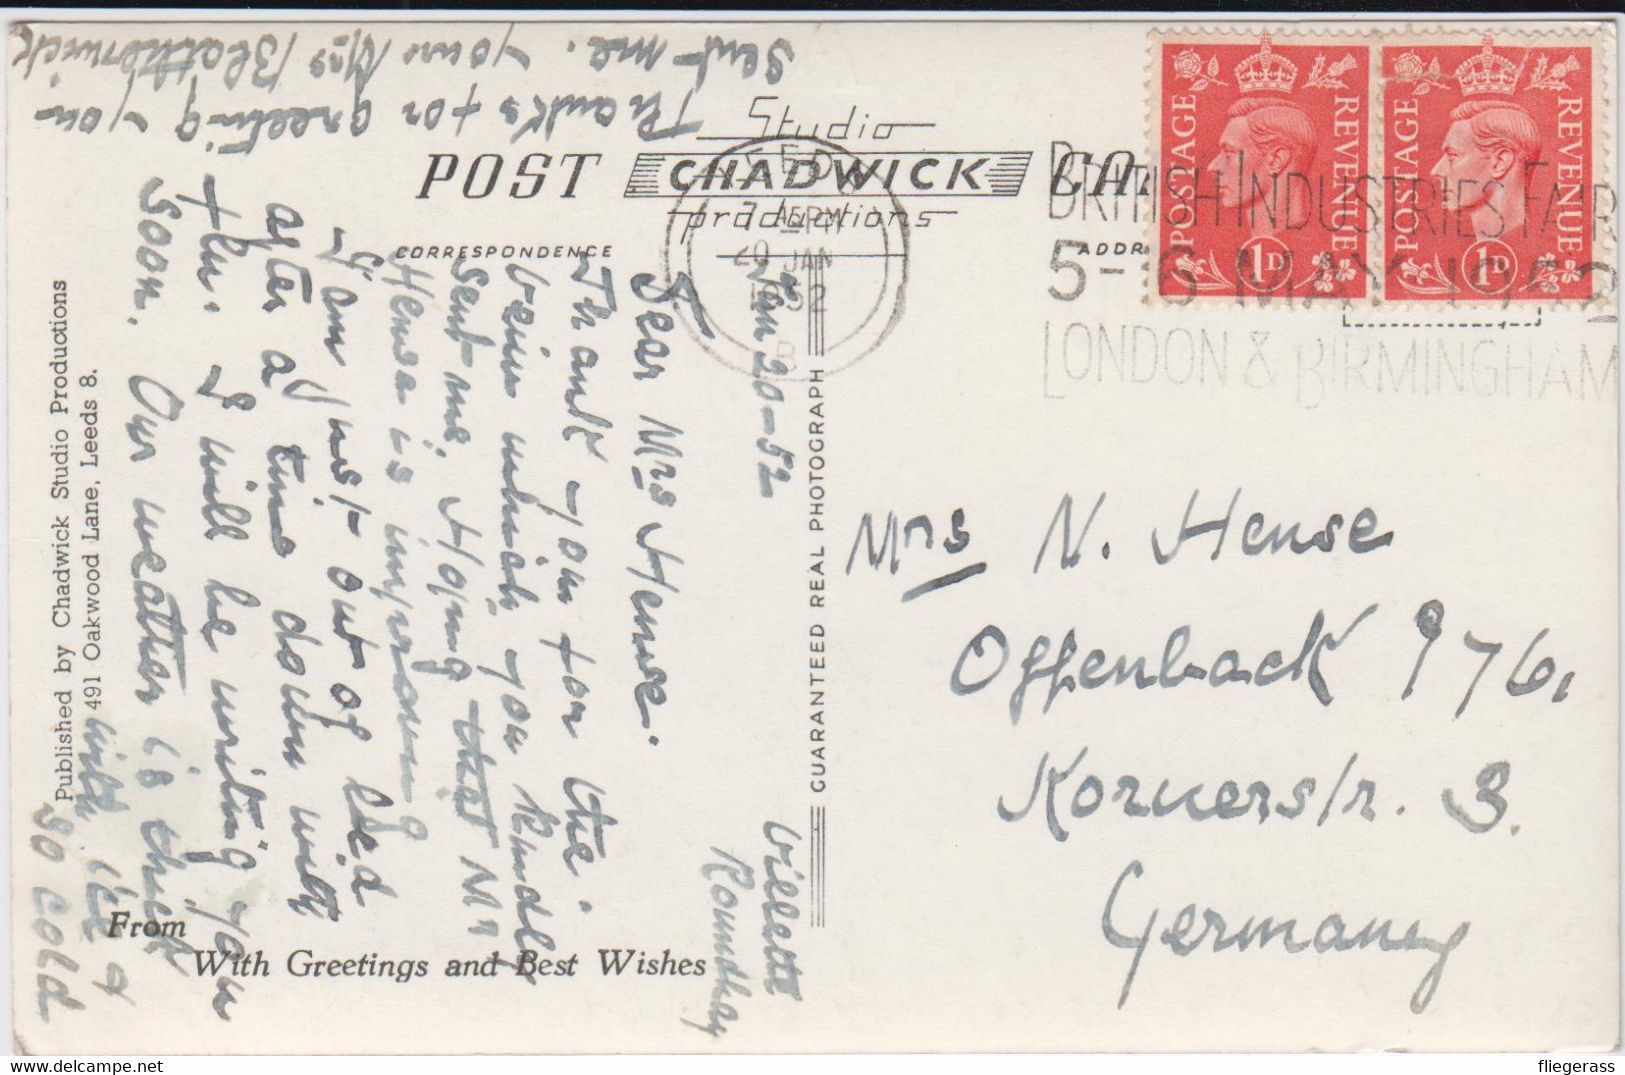 Studio
POST CHADWICK CA
productions
CORRESPONDENCE
ADDR
POSTAGE REVENUE 1D
POSTAGE REVENUE 1D
7 PM
JAN
BRITISH INDUSTRIES FAIR
5-16 MAY 1952
LONDON & BIRMINGHAM
Villette
Roundhay
Jan 20-52
Dear Mrs Hense.
Thank you for the
which you kindly
sent me. Hoping that Mr
Hense is improving
I am just out of bed
after a time down with
flu. I will be writing you
soon. Our weather is thick
with ice &
so cold
Thanks for greeting you
sent me. Yours Mrs Blatherwick
Published by Chadwick Studio Productions
491 Oakwood Lane, Leeds 8.
From
With Greetings and Best Wishes
GUARANTEED REAL PHOTOGRAPH
Mrs N. Hense
Offenbach 976,
Kornerstr. 3.
Germany
fliegerass